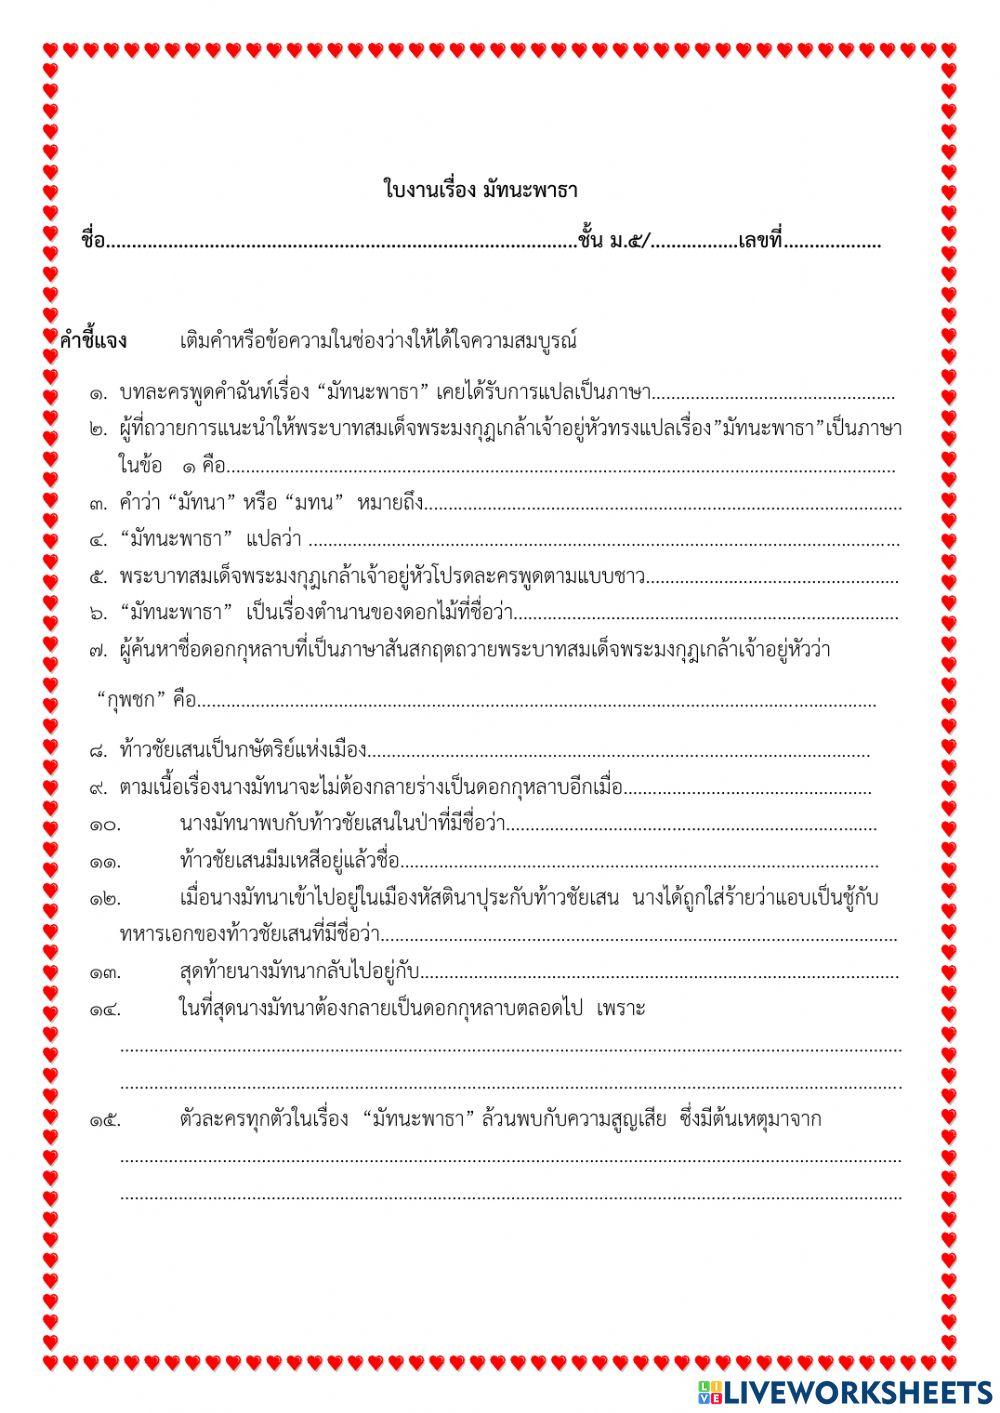 ใบงานเรื่อง มัทนะพาธา
ชื่อ..........................................................................................ชั้น ม.๕/.................เลขที่...................
คำชี้แจง เติมคำหรือข้อความในช่องว่างให้ได้ใจความสมบูรณ์
๑. บทละครพูดคำฉันท์เรื่อง “มัทนะพาธา” เคยได้รับการแปลเป็นภาษา..................................................
๒. ผู้ที่ถวายการแนะนำให้พระบาทสมเด็จพระมงกุฎเกล้าเจ้าอยู่หัวทรงแปลเรื่อง”มัทนะพาธา”เป็นภาษา
ในข้อ ๑ คือ..........................................................................................................................................
๓. คำว่า “มัทนา” หรือ “มทน” หมายถึง..................................................................................................
๔. “มัทนะพาธา” แปลว่า ..........................................................................................................................
๕. พระบาทสมเด็จพระมงกุฎเกล้าเจ้าอยู่หัวโปรดละครพูดตามแบบชาว....................................................
๖. “มัทนะพาธา” เป็นเรื่องตำนานของดอกไม้ที่ชื่อว่า................................................................................
๗. ผู้ค้นหาชื่อดอกกุหลาบที่เป็นภาษาสันสกฤตถวายพระบาทสมเด็จพระมงกุฎเกล้าเจ้าอยู่หัวว่า
“กุพชก” คือ............................................................................................................................................
๘. ท้าวชัยเสนเป็นกษัตริย์แห่งเมือง........................................................................................................
๙. ตามเนื้อเรื่องนางมัทนาจะไม่ต้องกลายร่างเป็นดอกกุหลาบอีกเมื่อ...................................................
๑๐. นางมัทนาพบกับท้าวชัยเสนในป่าที่มีชื่อว่า............................................................................
๑๑. ท้าวชัยเสนมีมเหสีอยู่แล้วชื่อ...................................................................................................
๑๒. เมื่อนางมัทนาเข้าไปอยู่ในเมืองหัสตินาปุระกับท้าวชัยเสน นางได้ถูกใส่ร้ายว่าแอบเป็นชู้กับ
ทหารเอกของท้าวชัยเสนที่มีชื่อว่า...........................................................................................................
๑๓. สุดท้ายนางมัทนากลับไปอยู่กับ...................................................................................................
๑๔. ในที่สุดนางมัทนาต้องกลายเป็นดอกกุหลาบตลอดไป เพราะ
..................................................................................................................................................................
..................................................................................................................................................................
๑๕. ตัวละครทุกตัวในเรื่อง “มัทนะพาธา” ล้วนพบกับความสูญเสีย ซึ่งมีต้นเหตุมาจาก
..................................................................................................................................................................
..................................................................................................................................................................
LIVE LIVEWORKSHEETS